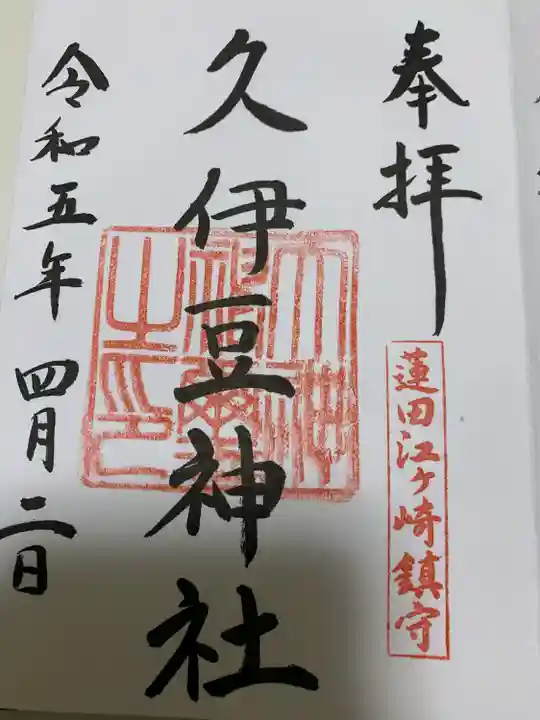 奉拝
蓮田江ヶ崎鎮守
久伊豆神社
令和五年 四月二日